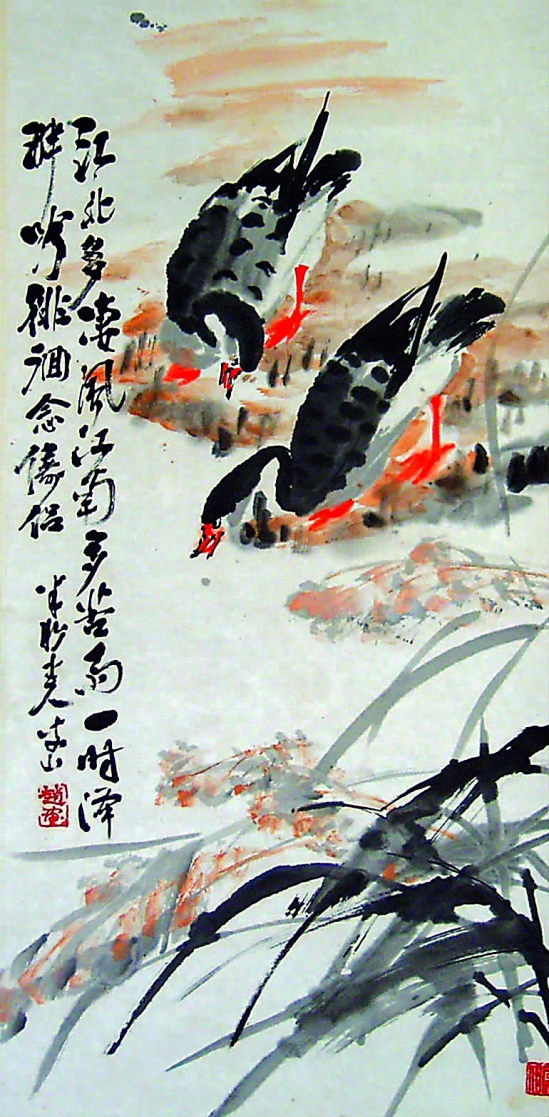 江北多凄風江南多苦雨一時澤
畔吟徘徊念儔侶